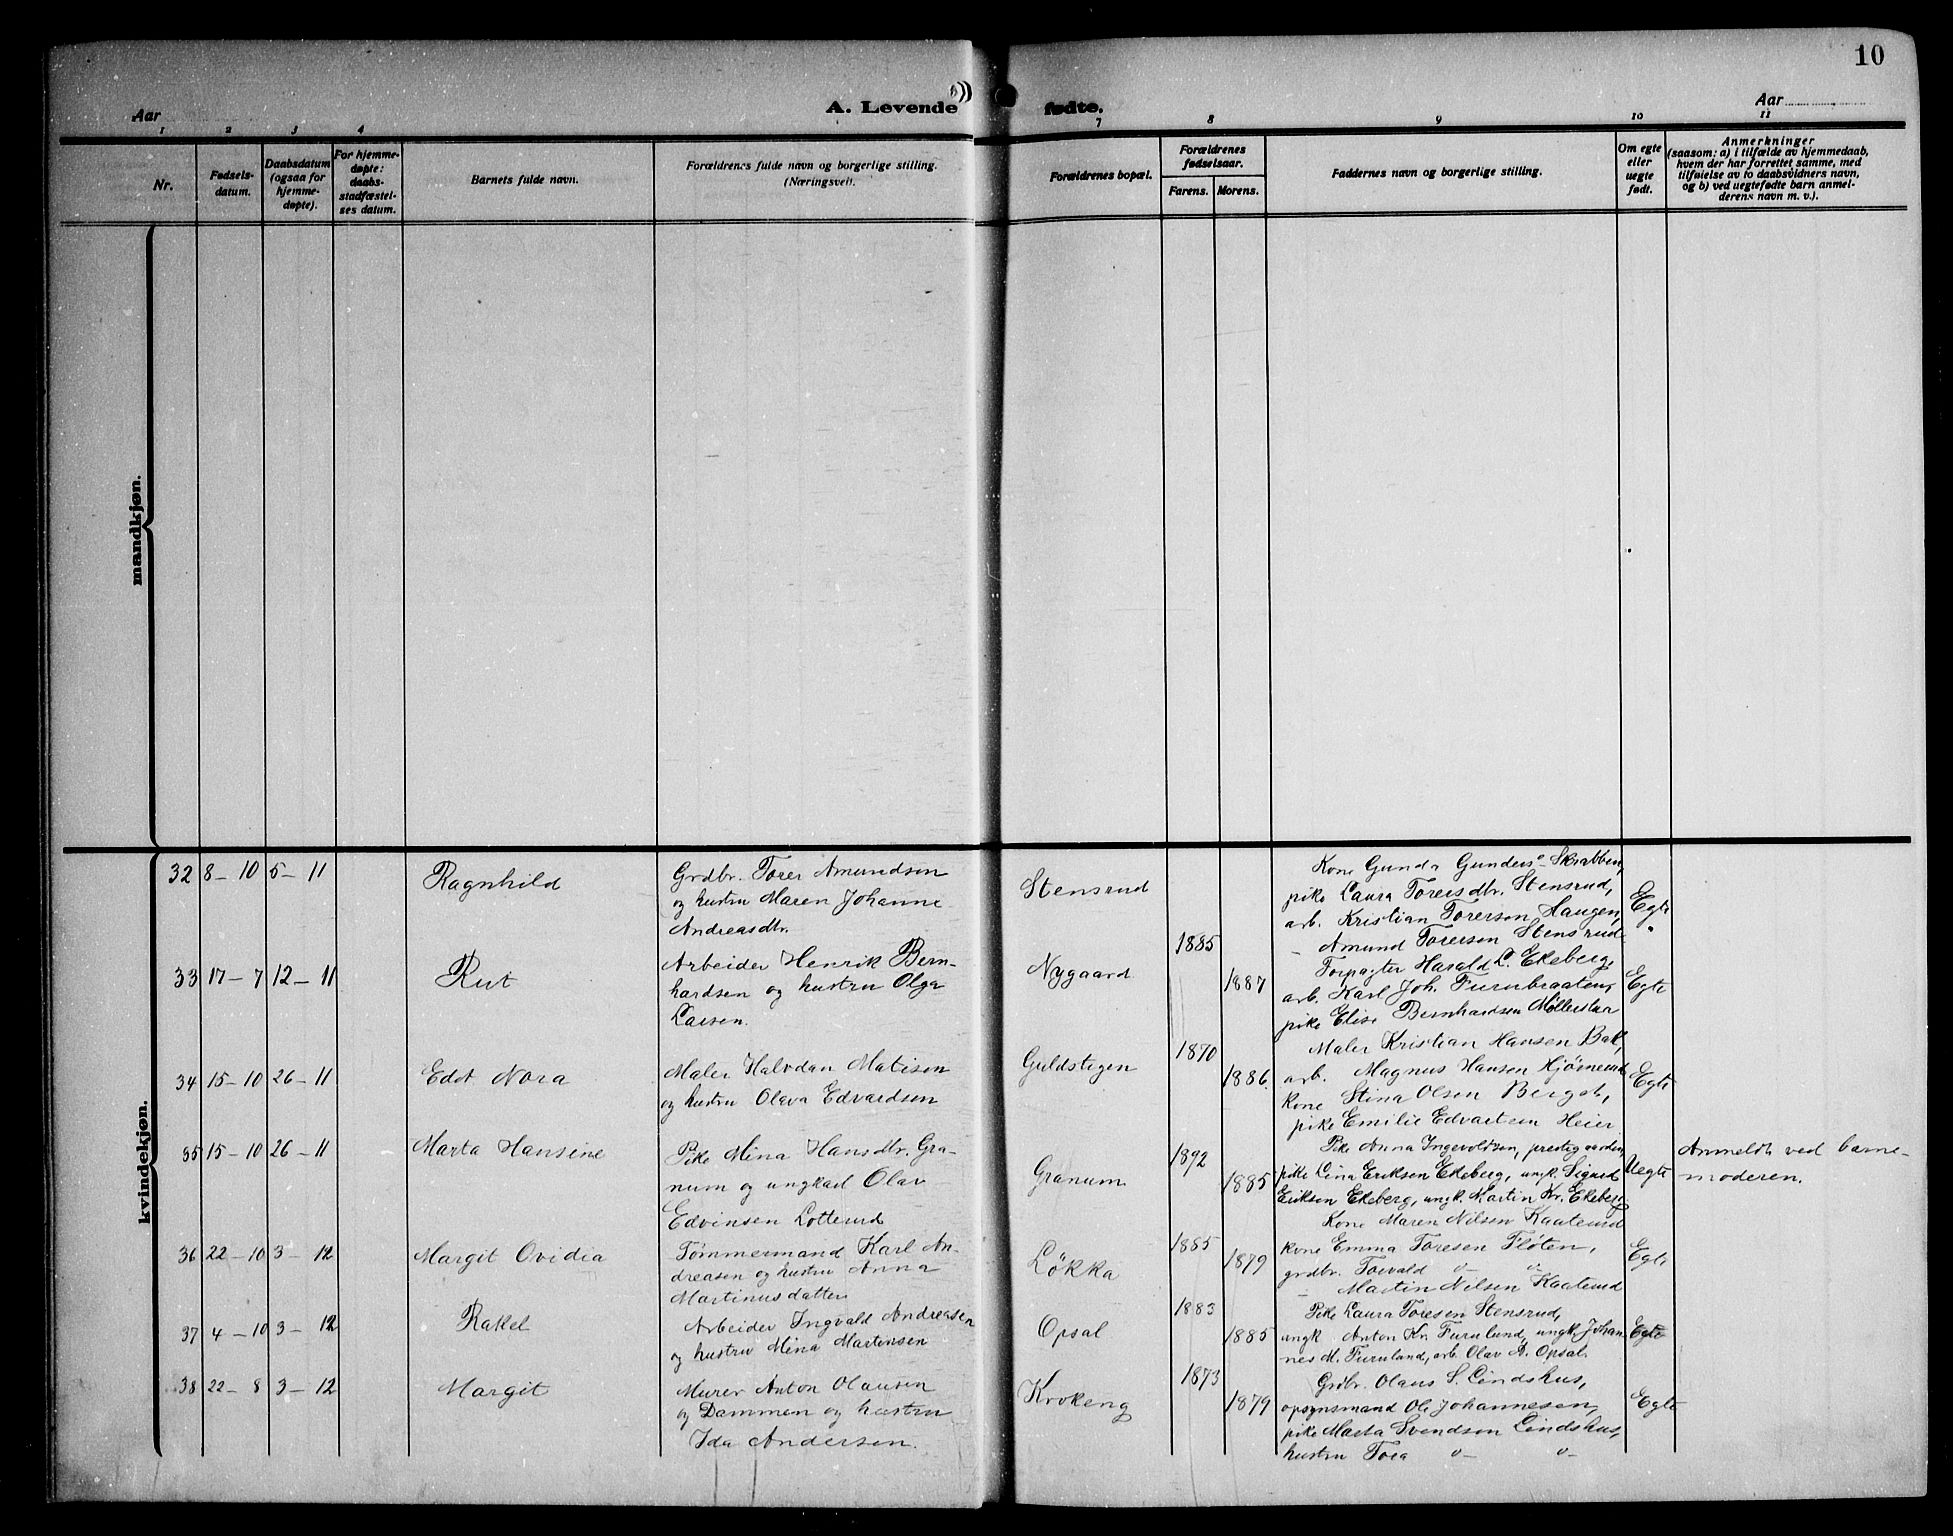 10
Aar
A. Levende
fødte.
Aar
1 2 3 4 7 8 9 10 11
Nr.
Fødsels-
datum.
Daabsdatum
(ogsaa for
hjemme-
døpte).
For hjemme-
døpte:
daabs-
stadfæstel-
ses datum.
Barnets fulde navn.
Forældrenes fulde navn og borgerlige stilling.
(Næringsvei).
Forældrenes bopæl.
Forældrenes
fødselsaar.
Farens. Morens.
Faddernes navn og borgerlige stilling.
Om egte
eller
uegte
født.
Anmerkninger
(saasom: a) i tilfælde av hjemmedaab,
hvem der har forrettet samme, med
tilføielse av to daabsvidners navn,
og b) ved uegtefødte barn anmel-
derens navn m. v.).
mandkjøn.
kvindekjøn.
32 8-10 5-11
Ragnhild
Grdbr. Torer Amundsen
og hustru Maren Johanne
Andreasdtr.
Stensrud
Kone Gunda Gunders- Skrabben,
pike Laura Torersdtr. Stensrud,
arb. Kristian Torersen Haugen,
- Amund Torersen Stensrud
Egte
33 17-7 12-11
Rut
Arbeider Henrik Bern-
hardsen og hustru Olga
Larsen.
Nygaard
1885
1887
Forpagter Harald L. Ekeberg,
arb. Karl Joh. Furubraaten,
pike Elise Bernhardsen
Egte
34 15-10 26-11
Edit Nora
Maler Halvdan Matisen
og hustru Olava Edvardsen
Guldstegen
1870
1886.
Maler Kristian Hansen Bak,
arb. Magnus Hansen
kone Stina Olsen
pike Emilie Edvartsen Heier
Egte
35 15-10 26-11
Marta Hansine
Pike Mina Hansdtr. Gra-
num og ungkarl Olav
Edvinsen Lotterud
Granum
1892
1885
Pike Anna Ingevoldsen, prestegaarden,
pike Lina Eriksen Ekeberg, ungk. Sigurd
Eriksen Ekeberg, ungk. Martin Kr. Ekeberg
Uegte
Anmeldt ved barne-
moderen.
36 22-10 3-12
Margit Ovidia
Tømmermand Karl An-
dreasen og hustru Anna
Martinusdatter
Løkka
1885
1879
Kone Maren Nilsen Kaaterud
kone Emma Toresen Fløten,
grdbr. Torvald " "
- Martin Nilsen Kaaterud
Egte
37 4-10 3-12
Rakel
Arbeider Ingvald Andreasen
og hustru Mina Martensen
Opsal
1883
1885
Pike Laura Toresen Stensrud,
ungk. Anton Kr. Furulund, ungk. Johan-
nes M. Furuland, arb. Olav A. Opsal.
Egte
38 22-8 3-12
Margit
Murer Anton Olausen
og Dammen og hustru
Ida Andersen.
Krokeng
1873
1879
Grdbr. Olaus S. Lindshus,
opsynsmand Ole Johannesen,
pike Marta Svendsen Lindshus,
hustru Tora " "
Egte